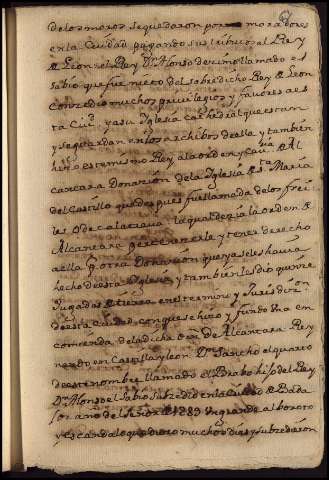 delos moros se quedaron por moradores
en la Ciudad pagando sus tributos al Rey
de Leon. el Rey Dn Alonso decimo llamado el
sabio que fue nieto del sobredicho Rey de Leon
concedio muchos privilegios y favores a es
ta Ciud. y a su Yglesia cathedral que estan
y se guardan en los archibos de ella y tambien
hizo este mismo Rey a la orden y Cavria de Al
cantara Donacion de la Yglesia de sta Maria
del Castillo que despues fue llamada de los frei
les de calatrava la qual dezia la orden de
Alcantara pertenecerle y tener derecho
a ella por otra Donacion que ya se les havia
hecho de esta Yglesia y tambien les dio quinze
Jugadas de tierra en el termino y Jurisdicon
de esta Ciudad con que se hizo y fundo una en
comienda de la dicha orn de Alcantara. Rey
nando en Castilla y Leon Dn Sancho el quarto
de este nombre llamado el Brabo hijo del Rey
Dn Alonso el Sabio subzedio en la Ciudad de Bada
Joz año del Señor de 1289 un grande alboroto
y escandalo que duro muchos dias y subzedieron